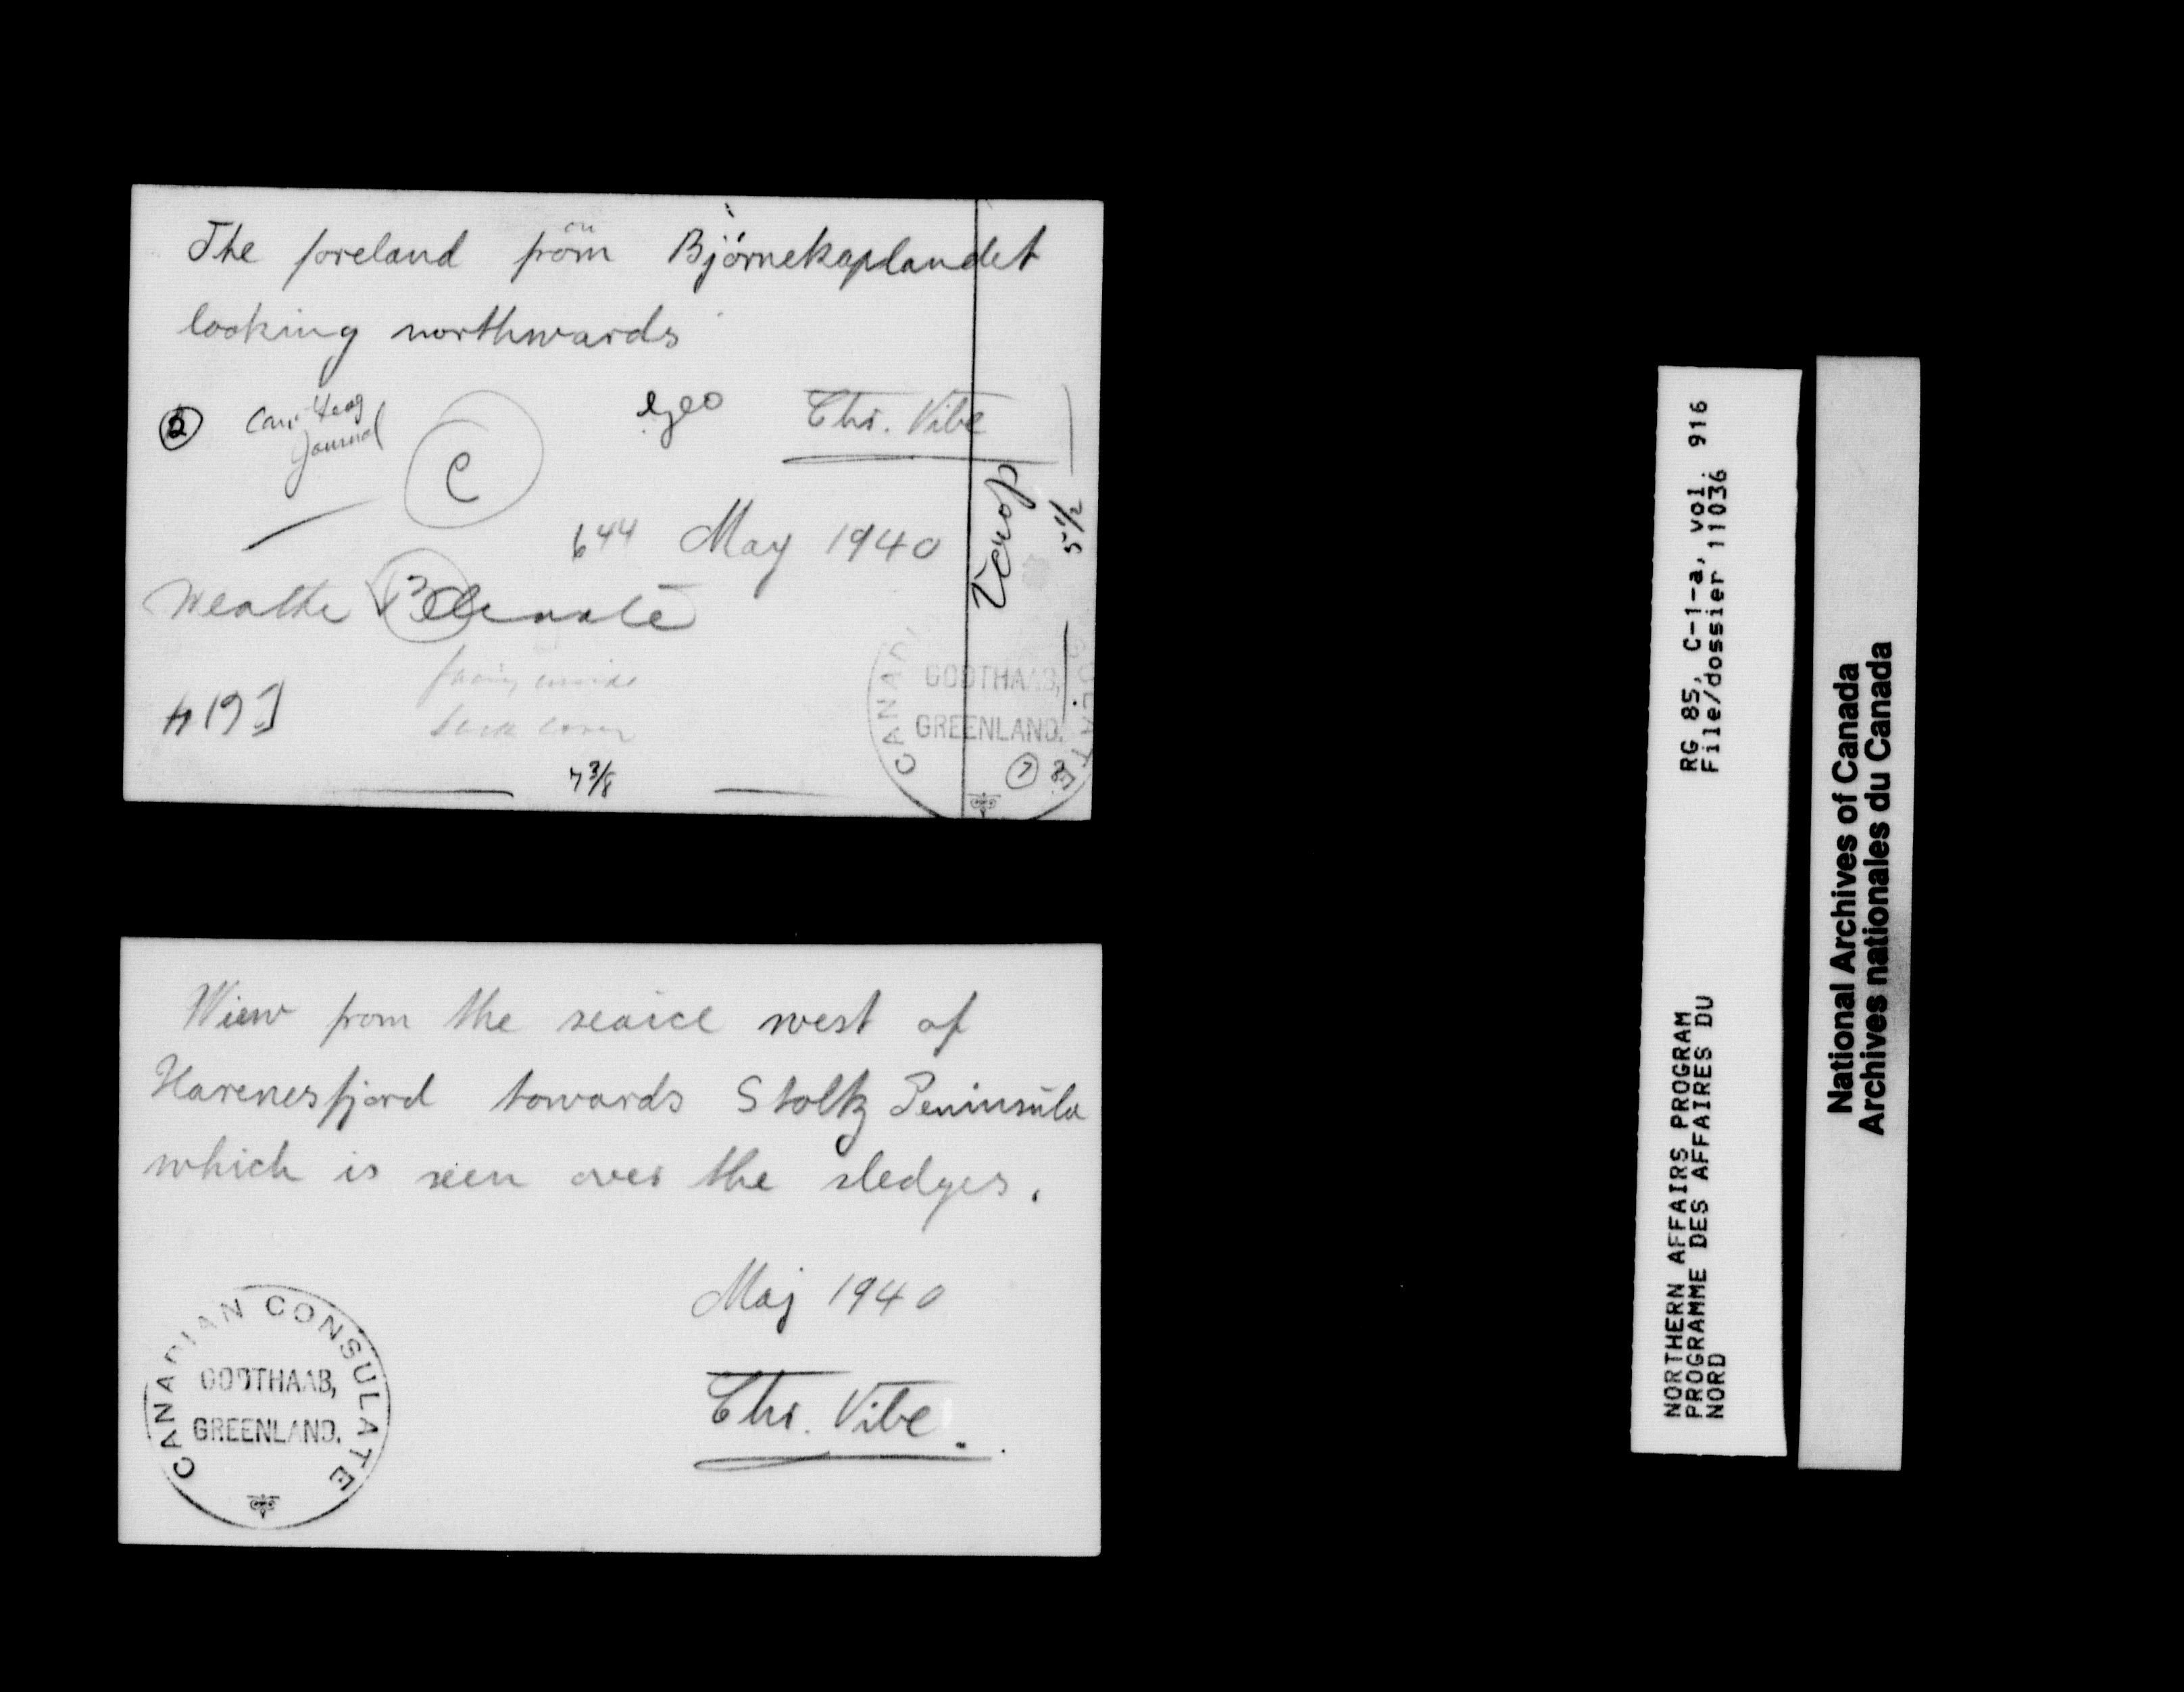 The foreland from Björnekaplandet
on
looking northwards
2 Can. Geog
Journal
C
Chr. Vibe
644 May 1940
crop
5 1/2
B Climate
facing inside
back cover
7 3/8
7
CANADIAN CONSULATE
GODTHAAB,
GREENLAND.
View from the seaice west of
Harenesfjord towards Stoltz Peninsula
which is seen over the sledges.
Maj 1940
Chr. Vibe.
CANADIAN CONSULATE
GODTHAAB,
GREENLAND.
RG 85, C-1-a, vol. 916
File/dossier 11036
NORTHERN AFFAIRS PROGRAM
PROGRAMME DES AFFAIRES DU
NORD
National Archives of Canada
Archives nationales du Canada